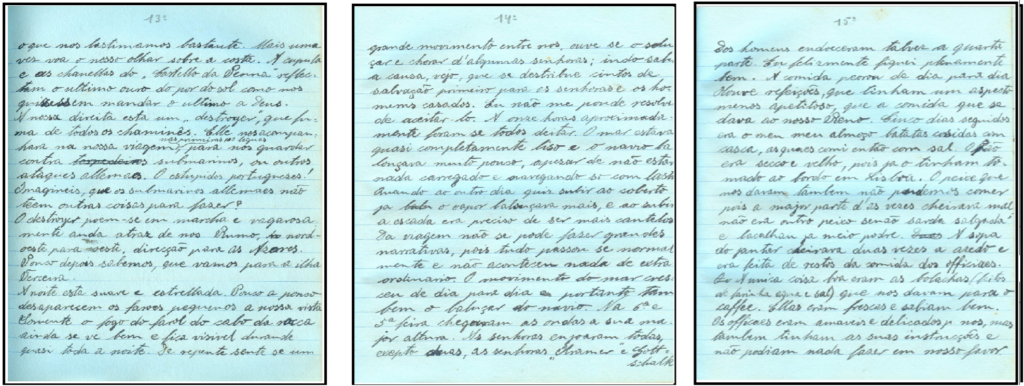 13º
o que nos lastimamos bastante. Mais uma
vez voa o nosso olhar sobre a costa. A cupula
e as chanellas do „Castello da Penna" reflec-
tiam o ultimo ouro do por do sol como nos
quisessem mandar o ultimo a Deus.
A nossa direita esta um „destroyer", que fu-
ma de todos os chaminés. Elle nos acompan-
hara na nossa viagem, para nos guardar
contra submarinos, ou outros
ataques allemães. O estupidos portugueses!
Imagineis, que os submarinos allemaes não
teem outras coisas para fazer?
O destroyer poem-se em marcha e vagarosa
mente anda atraz de nos. Rumo, nord-
oeste para oeste, direcção para as Açores.
Pouco depois sabemos, que vamos para a ilha
Terceira.
A noite esta suave e estrellada. Pouco a pouco
desaparecem os faroes pequenos a nossa vista
sómente o fogo do farol do cabo da rocca
ainda se vê bem e fica visivel durande
quasi toda a noite. De repente sente se um
14º
grande movimento entre nos, ouve se o solu
çar e chorar d'algumas senhoras; indo saber
a causa, vejo, que se destribue cintos de
salvação primeiro para as senhoras e os ho
mems casados. Eu não me ponde resolver
de aceitar lo. A onze horas aproximada
mente foram se todos deitar. O mar estava
quasi completamente liso e o navio ba
lonçava muito pouco, apesar de não estar
nada carregado e navegando só com lastro
Quando ao outro dia quis subir ao coberto
ja o vapor balouçava mais, e ao subir
a escada era preciso de ser mais cauteloso
Da viagem não se pode fazer grandes
narrativas, pois tudo passou se normal
mente e não aconteceu nada de extra
ordinario. O movimento do mar cres
ceu de dia para dia e portante tam
bem o baluçar do navio. Na 4ª e
5ª feira chegavam as ondas a sua ma
ior altura. As senhoras enjoaram todas,
excepto duas, as senhoras "Kramer" e Gott-
schalk
15º
Dos homens endreceram talvez a quarta
parte. Eu felizmente fiquei plenamente
bem. A comida peorou de dia para dia
Houve refeições, que tinham um aspecto
menos apetitoso, que a comida que se
dava ao nosso Steno. Cinco dias seguidos
era o meu almoço batatas cosidas em
casca, as quaes comi então com sal. O pão
era secco e velho, pois ja o tinham to
mado ao bordo em Lisboa. O peixe que
nos davam tambem não podemos comer
pois a major parte d'as vezes cheirava mal
não era outro peixo senão sarda salgada
e bacalhau ja meio podre. A sopa
do jantar cheirava duas vezes a azedo e
era feita de restos da comida dos officiaes.
A unica coisa boa eram as bolachas (feitas
de farinha agua e sal) que nos davam para o
caffee. Ellas eram frescas e sabiam bem.
Os officaes eram amaveis e delicados p. nos, mas
tambem tinham as suas instrucções e
não podiam nada fazer em nosso favor